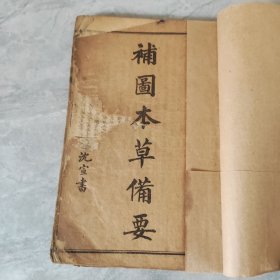 補圖本草備要
沈宣書